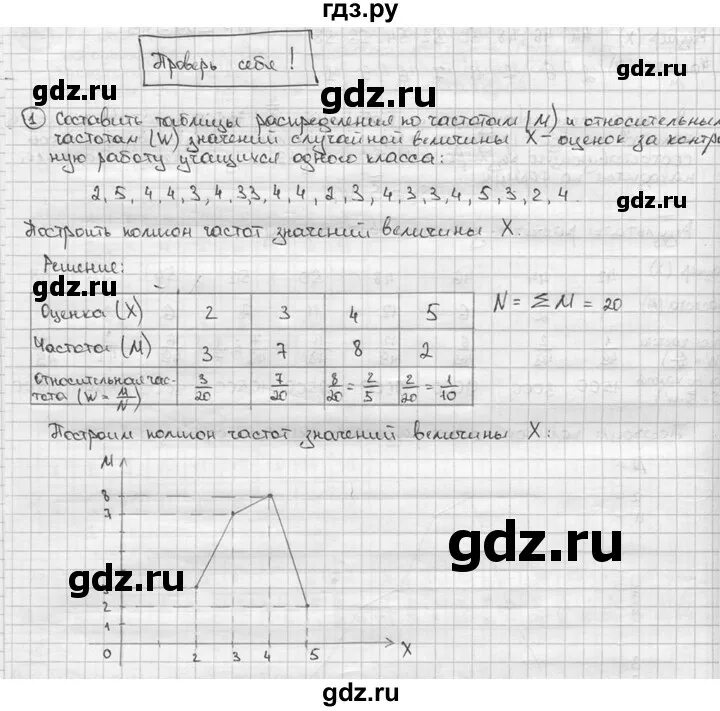 гдз.ру
Проверь себя!
gdz.ru gdz.ru
1 Составить таблицы распределения по частотам (М) и относительным
частотам (W) значений случайной величины X – оценок за контр
ную работу учащихся одного класса:
2, 5, 4, 4, 3, 4, 3, 3, 4, 4, 2, 3, 4, 3, 3, 4, 5, 3, 2, 4.
gdz.ru
Построить полигон частот значений величины X.
Решение:
gdz.ru
Оценка (X) 2 3 4 5 N = Σ M = 20
Частота (М) 3 7 8 2
Относительная час-
тота (W = M/N) 3/20 7/20 8/20 = 2/5 2/20 = 1/10
Построим полигон частот значений величины X:
M
8
7
gdz.ru
gdz.ru
3
2
1
0 2 3 4 5 X
gdz.ru